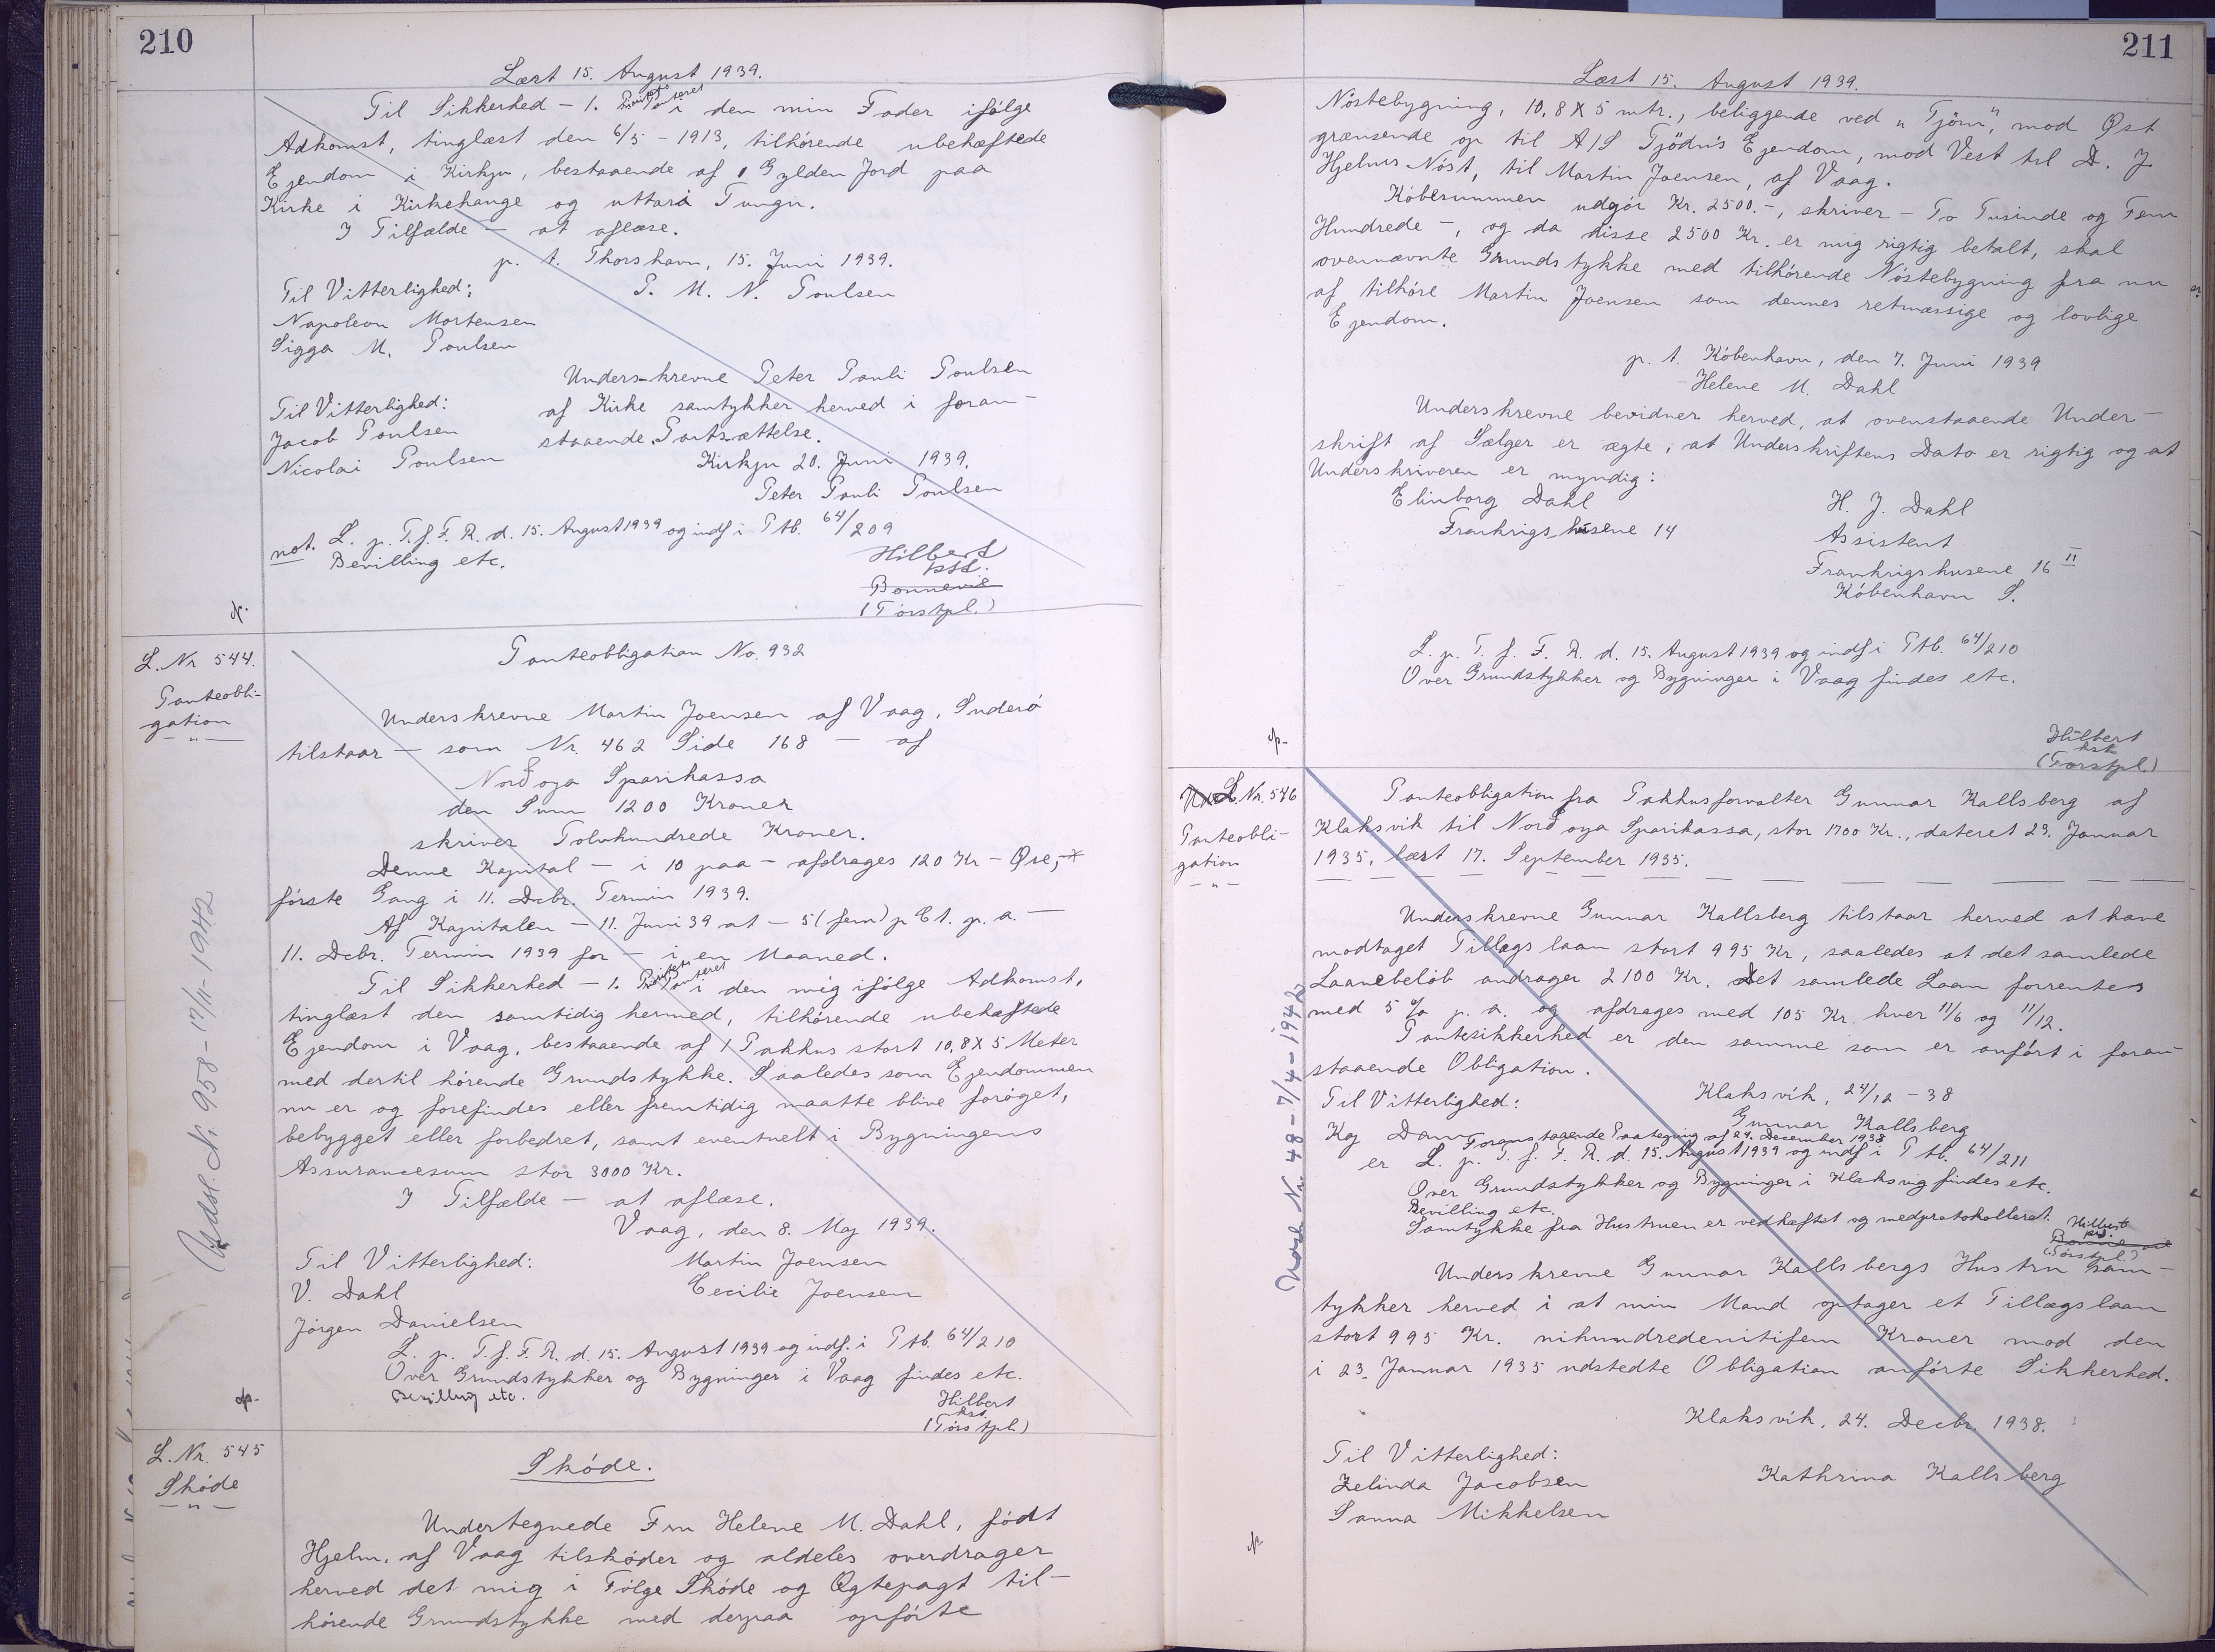 210
Læst 15. August 1939.
Til Sikkerhed - 1. Prioritets Panteret i den min Fader ifølge
Adkomst, tinglæst den 6/5 - 1913, tilhørende ubehæftede
Ejendom i Kirkju, bestaaende af 1 Gylden Jord paa
Kirke i Kirkehauge og uttari Tungu.
I Tilfælde - at aflæse.
p. t. Thorshavn, 15. Juni 1939.
Til Vitterlighed: P. M. N. Poulsen
Napoleon Mortensen
Sigga M. Poulsen
Underskrevne Peter Pauli Poulsen
Til Vitterlighed: af Kirke samtykker herved i foran-
Jacob Poulsen staaende Pantsættelse.
Nicolai Poulsen Kirkju 20. Juni 1939.
Peter Pauli Poulsen
not. L. p. T. f. F. R. d. 15. August 1939 og indf i Ptb. 64/209
Bevilling etc.
Hilbert
kst.
Bonnevie
(Tórstpl.)
L. Nr 544.
Panteobli-
gation
Panteobligation No. 932
Underskrevne Martin Joensen af Vaag, Suderó
tilstaar - som Nr. 462 Side 168 - af
Norðoya Sparikassa
den Sum 1200 Kroner
skriver Tolvhundrede Kroner.
Denne Kapital - i 10 paa - afdrages 120 Kr - Øre,
fórste Gang i 11. Dcbr. Termin 1939.
Af Kapitalen - 11. Juni 39 at - 5 (fem) p Ct. p. a. -
11. Dcbr. Termin 1939 for - i en Maaned.
Til Sikkerhed - 1. Prioritets Panteret i den mig ifólge Adkomst,
tinglæst den samtidig hermed, tilhórende ubehæftede
Ejendom i Vaag, bestaaende af 1 Pakhus stort 10,8 X 5 Meter
med dertil hórende Grundstykke. Saaledes som Ejendommen
nu er og forefindes eller fremtidig maatte blive foróget,
bebygget eller forbedret, samt eventuelt i Bygningens
Assurancesum stor 3000 Kr.
I Tilfælde - at aflæse.
Vaag, den 8. Maj 1939.
Til Vitterlighed: Martin Joensen
V. Dahl Cecilie Joensen
Jórgen Danielsen
L. p. T. f. F. R. d. 15. August 1939 og indf. i Ptb. 64/210
Over Grundstykker og Bygninger i Vaag findes etc.
Bevilling etc.
Hilbert
kst.
(Tórstpl.)
Udsl. Nr. 958 - 17/11-1942
L. Nr. 545
Skóde
Skóde.
Undertegnede Fru Helene M. Dahl, fódt
Hjelm, af Vaag tilskóder og aldeles overdrager
herved det mig i Fólge Skóde og Ægtepagt til-
hórende Grundstykke med derpaa opfórte
211
Læst 15. August 1939.
Nóstebygning, 10,8 X 5 mtr., beliggende ved "Tjörn", mod Øst
grænsende op til A/S Tjödn's Ejendom, mod Vest til D. J.
Hjelms Nóst, til Martin Joensen, af Vaag.
Kóbesummen udgór Kr. 2500.-, skriver - To Tusinde og Fem
Hundrede -, og da disse 2500 Kr. er mig rigtig betalt, skal
ovennævnte Grundstykke med tilhórende Nóstebygning fra nu
af tilhóre Martin Joensen som dennes retmæssige og lovlige
Ejendom.
p. t. Kóbenhavn, den 7. Juni 1939
Helene M. Dahl
Underskrevne bevidner herved, at ovenstaaende Under-
skrift af Sælger er ægte, at Underskriftens Dato er rigtig og at
Underskriveren er myndig:
Elinborg Dahl H. J. Dahl
Frankrigshusene 14 Assistent
Frankrigshusene 16 II
Kóbenhavn S.
L. p. T. f. F. R. d. 15. August 1939 og indf i Ptb. 64/210
Over Grundstykker og Bygninger i Vaag findes etc.
Hilbert
kst
(Tórstpl.)
L. Nr. 546
Panteobli-
gation
Panteobligation fra Pakhusforvalter Gunnar Kallsberg af
Klaksvik til Norðoya Sparikassa, stor 1700 Kr., dateret 23. Januar
1935, læst 17. September 1935.
Underskrevne Gunnar Kallsberg tilstaar herved at have
modtaget Tillægslaan stort 995 Kr, saaledes at det samlede
Laanebelób andrager 2100 Kr. Det samlede Laan forrentes
med 5 % p. a. og afdrages med 105 Kr. hver 11/6 og 11/12.
Pantesikkerhed er den samme som er anfórt i foran-
staaende Obligation.
Klaksvik, 24/12 - 38
Til Vitterlighed: Gunnar Kallsberg
Kaj Dam
Foranstaaende Paategning af 24. December 1938
er L. p. T. f. F. R. d. 15. August 1939 og indf i Ptb. 64/211
Over Grundstykker og Bygninger i Klaksvig findes etc.
Bevilling etc.
Samtykke fra Hustruen er vedhæftet og medprotokolleret.
Hilbert
kst.
Bonnevie
(Tórstpl.)
Underskrevne Gunnar Kallsbergs Hustru sam-
tykker herved i at min Mand optager et Tillægslaan
stort 995 Kr. nihundredenitifem Kroner mod den
i 23. Januar 1935 udstedte Obligation anfórte Sikkerhed.
Klaksvik, 24. Decbr. 1938.
Til Vitterlighed:
Zelinda Jacobsen Kathrina Kallsberg
Sanna Mikkelsen
Nr. 48 - 7/4 - 1942